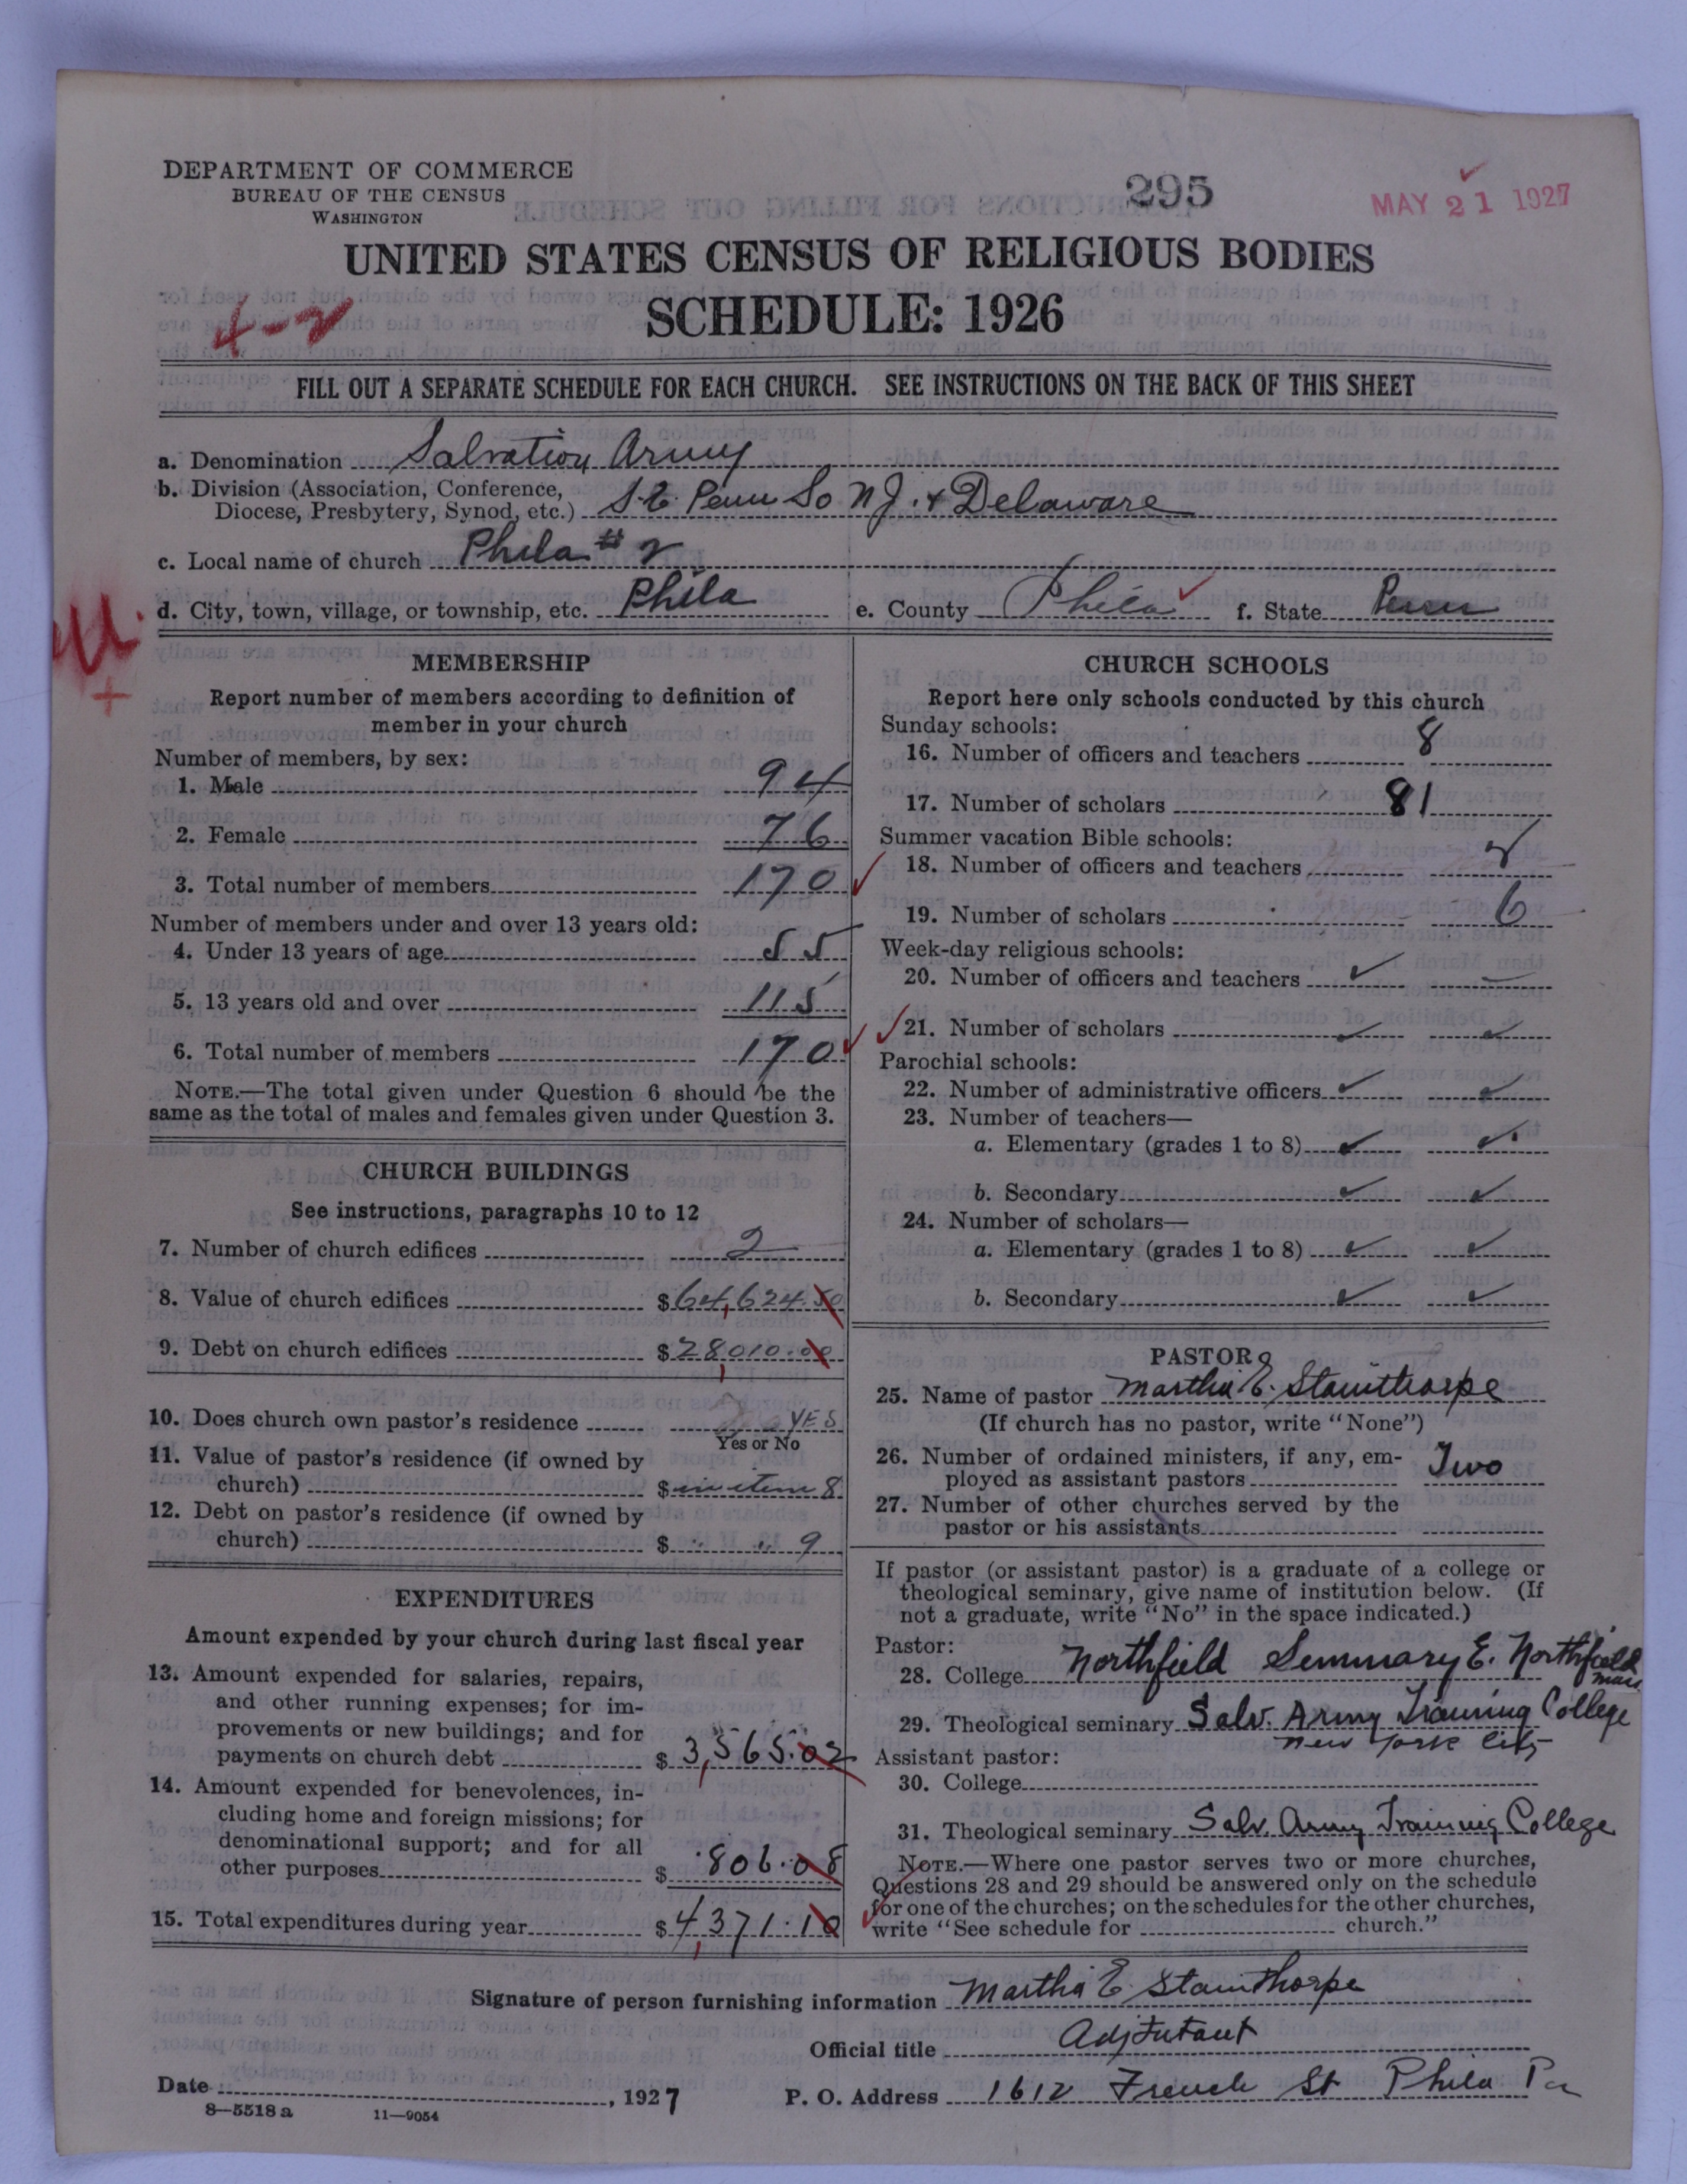 DEPARTMENT OF COMMERCE
BUREAU OF THE CENSUS
WASHINGTON
295
MAY 21 1927
UNITED STATES CENSUS OF RELIGIOUS BODIES
SCHEDULE: 1926
4-2
FILL OUT A SEPARATE SCHEDULE FOR EACH CHURCH. SEE INSTRUCTIONS ON THE BACK OF THIS SHEET
a. Denomination Salvation Army
b. Division (Association, Conference,
Diocese, Presbytery, Synod, etc.) S.E. Penn So NJ. & Delaware
c. Local name of church Phila # 2
d. City, town, village, or township, etc. Phila e. County Phila f. State Penn
MEMBERSHIP
Report number of members according to definition of
member in your church
Number of members, by sex:
1. Male 94
2. Female 76
3. Total number of members 170
Number of members under and over 13 years old:
4. Under 13 years of age 55
5. 13 years old and over 115
6. Total number of members 170
NOTE.—The total given under Question 6 should be the
same as the total of males and females given under Question 3.
CHURCH BUILDINGS
See instructions, paragraphs 10 to 12
7. Number of church edifices 2
8. Value of church edifices $64,624.50
9. Debt on church edifices $28,010.00
10. Does church own pastor's residence YES
Yes or No
11. Value of pastor's residence (if owned by
church) $ in item 8
12. Debt on pastor's residence (if owned by
church) $ " " 9
EXPENDITURES
Amount expended by your church during last fiscal year
13. Amount expended for salaries, repairs,
and other running expenses; for im-
provements or new buildings; and for
payments on church debt $3,565.02
14. Amount expended for benevolences, in-
cluding home and foreign missions; for
denominational support; and for all
other purposes $806.08
15. Total expenditures during year $4,371.10
CHURCH SCHOOLS
Report here only schools conducted by this church
Sunday schools:
16. Number of officers and teachers 8
17. Number of scholars 81
Summer vacation Bible schools:
18. Number of officers and teachers 2
19. Number of scholars 6
Week-day religious schools:
20. Number of officers and teachers
21. Number of scholars
Parochial schools:
22. Number of administrative officers
23. Number of teachers—
a. Elementary (grades 1 to 8)
b. Secondary
24. Number of scholars—
a. Elementary (grades 1 to 8)
b. Secondary
PASTOR
25. Name of pastor Martha E. Stainthorpe
(If church has no pastor, write "None")
26. Number of ordained ministers, if any, em-
ployed as assistant pastors Two
27. Number of other churches served by the
pastor or his assistants
If pastor (or assistant pastor) is a graduate of a college or
theological seminary, give name of institution below. (If
not a graduate, write "No" in the space indicated.)
Pastor:
28. College Northfield Semmary E. Northfield
Mass
29. Theological seminary Salv. Army Training College
New York City
Assistant pastor:
30. College
31. Theological seminary Salv. Army Training College
NOTE.—Where one pastor serves two or more churches,
Questions 28 and 29 should be answered only on the schedule
for one of the churches; on the schedules for the other churches,
write "See schedule for church."
Signature of person furnishing information Martha E. Stainthorpe
Official title Adjtutant
Date , 1927 P. O. Address 1612 French St Phila Pa
8—5518 a 11—9054